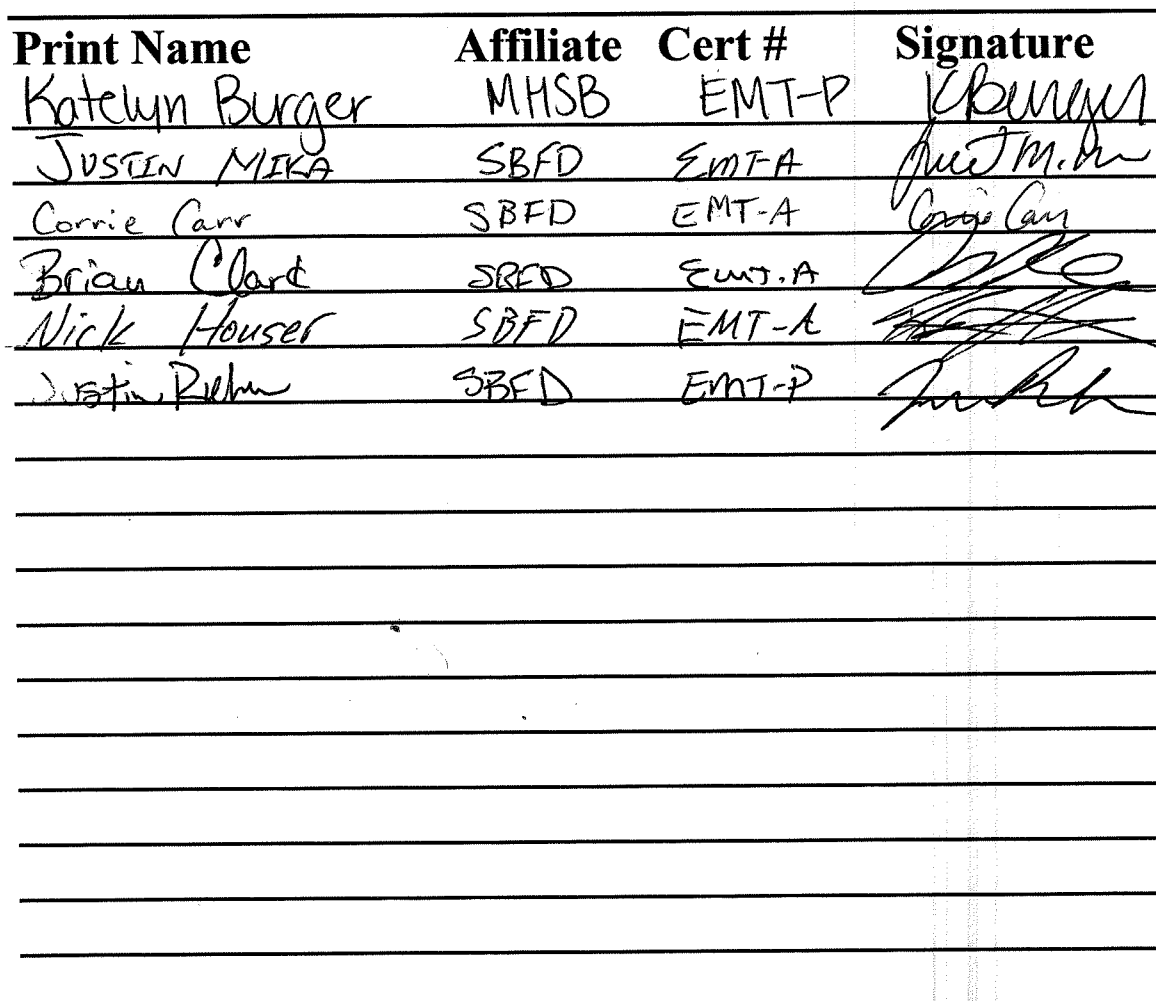 Print Name Affiliate Cert # Signature
Katelyn Burger MHSB EMT-P KBurger
JUSTIN MIKA SBFD EMT-A
Corrie Carr SBFD EMT-A Corrie Carr
Brian Clark SBFD EMT-A
Nick Houser SBFD EMT-A
Justin SBFD EMT-P